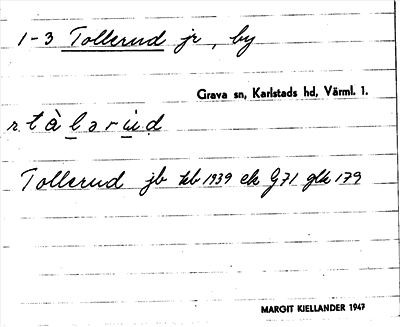 1-3 Tollerud jr, by
Grava sn, Karlstads hd, Värml. 1.
r. tàlərud
Tollerud jb kb 1939 ek G71 glk 179
MARGIT KIELLANDER 1947